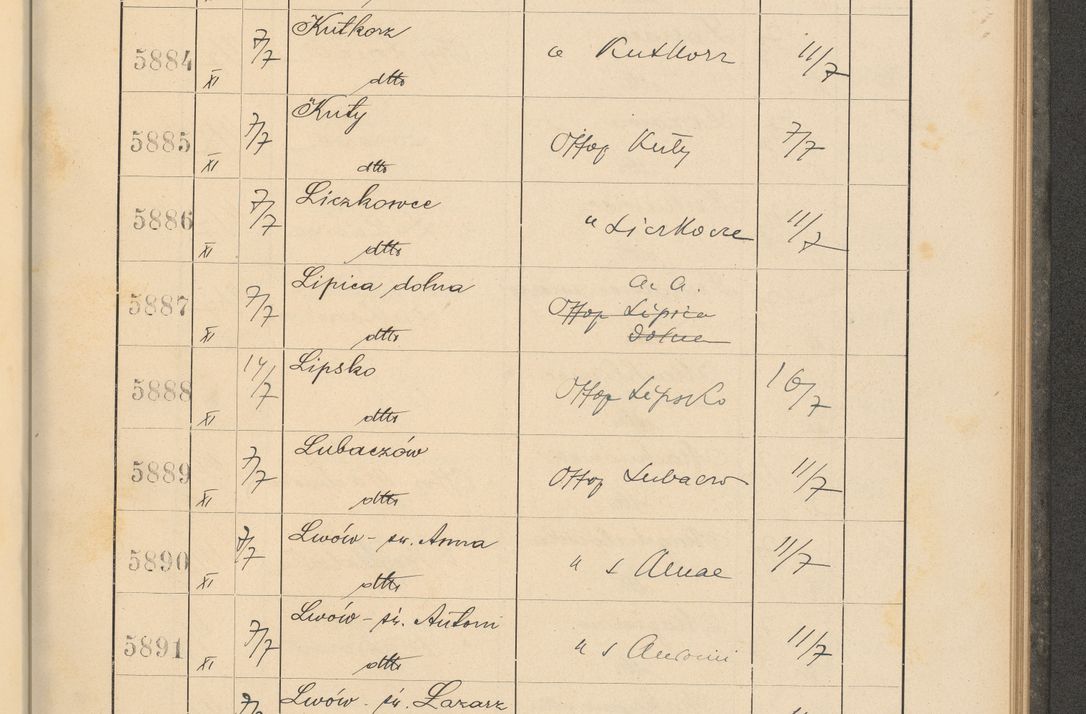 5884 XI 7/7 Kutkorz dtto a Kutkorz 11/7
5885 XI 7/7 Kuty dtto Offap Kuty 7/7
5886 XI 7/7 Liczkowce dtto " Liczkowce 11/7
5887 XI 7/7 Lipica dolna dtto a. a.
Offap Lipica
Dolna
5888 XI 14/7 Lipsko dtto Offap Lipsko 16/7
5889 XI 7/7 Lubaczów dtto Offap Lubacw 11/7
5890 XI 7/7 Lwów - św. Anna dtto " s Annae 11/7
5891 XI 7/7 Lwów - św. Antoni dtto " s Antonii 11/7
Lwów - św. Łazarz